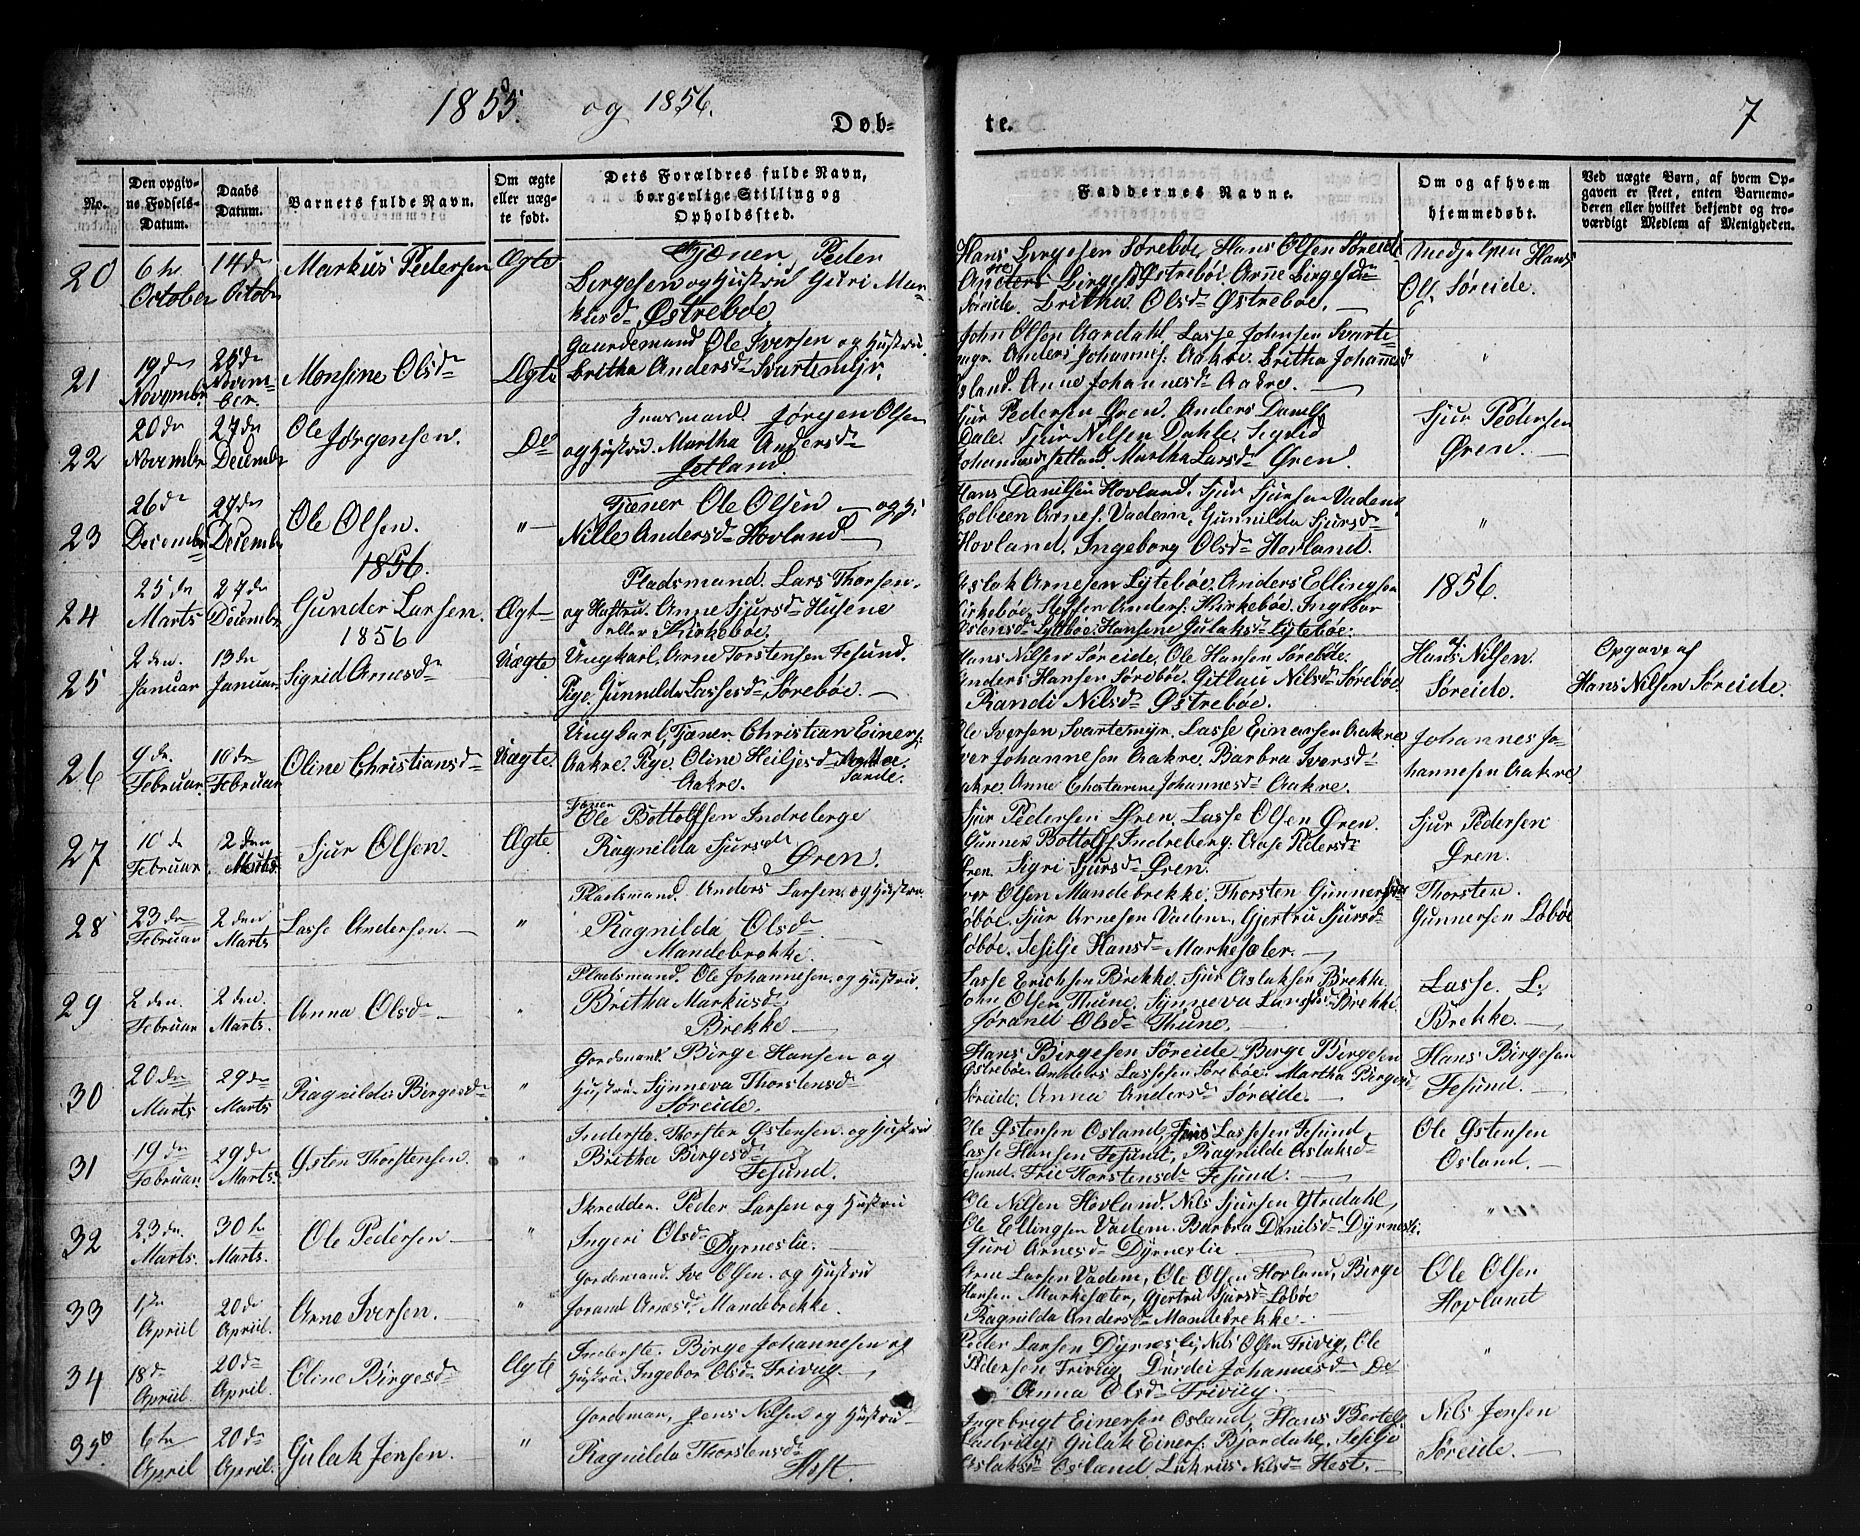 1855 og 1856.
Døb-
te.
7
No.
Den opgiv-
ne Fødsels-
Datum.
Daabs
Datum.
Barnets fulde Navn.
Om ægte
eller uæg-
te født.
Dets Forældres fulde Navn,
borgerlige Stilling og
Opholdssted.
Faddernes Navne.
Om og af hvem
hjemmedøbt.
Ved uægte Børn, af hvem Op-
gaven er skeet, enten Barnemo-
deren eller hvilket bekjendt og tro-
værdigt Medlem af Menigheden.
20
6te
October
14de
Octobr
Markus Pedersen
Ægte
Tjæner, Peder
Birgesen og Hustru Guri Mar-
kusd Østrebøe
Hans Birgesen Sørebøe, Hans Olsen Søreide
Anders Birgesd Østrebøe Arne Birgesdn
Søreide. Britha Olsd Østrebøe.
Medjelpen Hans
Ols. Søreide.
21
19de
Novembr
25de
Novem-
ber.
Monsine Olsd
Ægte
Gaardemand Ole Iversen og Hustru
Britha Andersd Svartemyr.
John Olsen Aardahl Lasse Johnsen Svarte-
myr. Anders Johannes. Aakre. Britha Johannesd
Osland. Anne Johannesd Aakre.
"
22
20de
Novembr
27de
Decembr
Ole
Jørgensen.
Do
Huusmand Jørgen Olsen
og Hustru. Martha Andersd
Jetland.
Sjur Pedersen Øren. Anders Daniels
Dale. Sjur Nilsen Dahle. Sigrid
Johannesd Jetland. Martha Larsd Øren.
Sjur Pedersen
Øren.
23
26de
Decembr
27de
Decembr
Ole Olsen.
"
Tjæner Ole Olsen og H:
Nille Andersd Hovland
Hans Danilsen Hovland. Sjur Sjursen Vadem
Colbeen Arnes. Vadeim, Gunnilda Sjursd
Hovland. Ingeborg Olsd Hovland.
"
1856.
24
25de
Marts
27de
Decembr
Gunder Larsen.
Ægt
Pladsmand. Lars Thorsen.
og Hustru. Anne Sjursd Husene
eller Kirkebøe.
Aslak Arnesen Lytebøe. Anders Ellingsen
Kirkebøe, Steffen Anders: Kirkebøe. Ingebor
Ostensd Lytebøe. Hansene Gulaksd Lytebøe.
1856.
1856
25
2den.
Januar
13de
Januar
Sigrid Arnesd
Uægte
Ungkarl, Arne Torstensen Fesund.
Pige, Gunnilda Lassesd Sørebøe.
Hans Nilsen Søreide. Ole Hansen Sørebøe.
Anders Hansen Sørebøe. Gitlau Nilsd Sørebøe
Randi Nilsd Østrebøe.
Hans Nilsen.
Søreide.
Opgave af
Hans Nilsen Søreide.
26
9de.
Februar.
10de
Februar
Oline Christiansd
Uægte.
Ungkarl, Tjæner Christian Einers:
Aakre. Pige. Oline Heiljesd
Sande.
Aakre.
Ole Iversen Svartemyr. Lasse Einersen Aakre
Iver Johannesen Aakre. Barbra Iversd
Aakre. Anne Chatarine Johannesd Aakre.
Johannes Jo-
hannesen Aakre
27
10de
Februar
2den
Marts.
Sjur Olsen.
Ægte.
Tjæner
Ole Bottolfsen Indreberge
Ragnilda Sjursd
Øren.
Sjur Pedersen Øren. Lasse Olsen Øren.
Gunner Bottolfs Indreberg. Aase Pedersd
Øren. Sigri Sjursd Øren.
Sjur Pedersen
Øren.
28
23de
Februar
2den
Marts
Lasse Andersen.
"
Pladsmand. Anders Larsen. og Hustru
Ragnilda Olsd
Mandebrekke.
Iver Olsen Mandebrekke. Thorsten Gunnersen
Løbøe. Sjur Arnesen Vadem, Gjertru Sjursd
Løbøe. Sesilje Hansd Markesæter.
Thorsten.
Gunnersen Løbøe
29
2den.
Februar
2den.
Marts.
Anna Olsd
"
Pladsmand. Ole Johannesen, og Hustru.
Britha Markusd
Brekke.
Lasse Erichsen Brekke. Sjur Aslaksen Brekke.
John Olsen Thune. Synneva Larsd Brekke.
Jørand Olsd Thune.
Lasse. L:
Brekke.
30
20de
Marts.
29de
Marts
Ragnilda Birgesd
"
Gordmand Birge Hansen og
Hustru. Synneva Thorstensd
Søreide.
Hans Birgesen Søreide. Birge Birgesen
Østrebøe Anders Lassesen Sørebøe. Martha Birgesd
Søreide. Anna Andersd Søreide.
Hans Birgesen
Fesund.
31
19de
Februar.
29de
Marts.
Østen Thorstensen.
"
Inderste. Thorsten Østensen. og Hustru
Britha Birgesd
Fesund.
Ole Østensen Osland, Jens Lassesen Fesund
Lasse Hansen Fesund, Ragnilde Aslaksd
Fesund. Trie Thorstensd Fesund.
Ole Østensen
Osland.
32
23de
Marts.
30te
Marts.
Ole Pedersen
"
Skredder. Peder Larsen og Hustru
Ingeri Olsd
Dyrneslie.
Ole Nilsen Hovland. Nils Sjursen Ytredahl,
Ole Ellingsen Vadem. Barbra Danilsd Dyrnesli.
Guri Arnesd Dyrneslie
"
33
1ste
Apriil
20de
Apriil.
Arne Iversen.
"
Gordemand. Ive Olsen. og Hustru
Jorand Arnesd. Mandebrekke.
Arne Larsen Vadem, Ole Olsen Hovland, Birge
Hansen Markesæter, Gjertru Sjursd Løbøe
Ragnilda Andersd Mandebrekke.
Ole Olsen
Hovland
34
18de
Apriil
20de
April.
Oline Birgesd
Ægte
Inderste. Birge Johannesen og
Hustru. Ingebor Olsd Trivig.
Peder Larsen Dyrnesli, Nils Olsen Trivig, Ole
Pedersen Triviig, Durdei Johannesd Do
Anna Olsd Triviig.
"
35
6te
April
20de
April.
Gulak Jensen.
"
Gordeman, Jens Nilsen og Hustru
Ragnilda Thorstensd
Hest.
Ingebrigt Einersen Osland, Hans Bertels
Ladvig, Gulak Einers. Bjordahl. Sesilje
Aslaksd Osland Nilsd Hest.
Nils Jensen
Søreide.